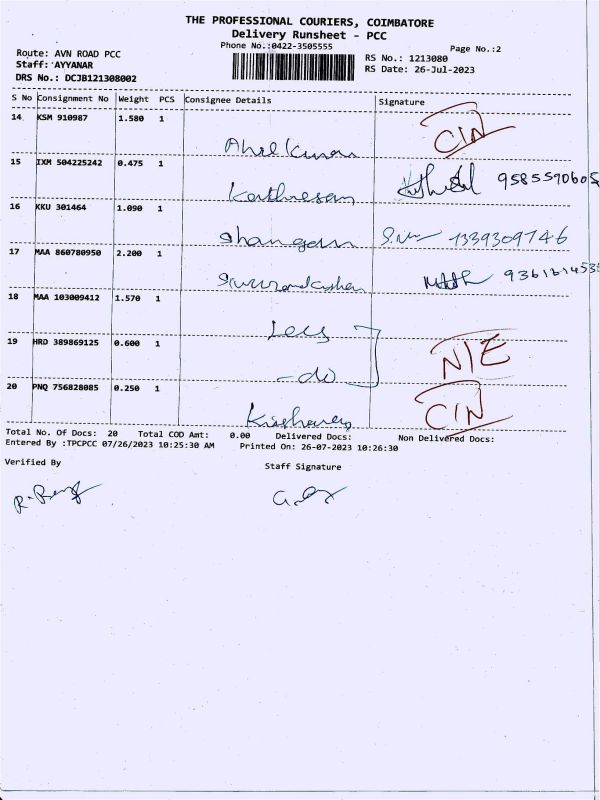 THE PROFESSIONAL COURIERS, COIMBATORE
Delivery Runsheet - PCC
Phone No.:0422-3505555
Page No.:2
Route: AVN ROAD PCC
Staff: AYYANAR
DRS No.: DCJB121308002
RS No.: 1213080
RS Date: 26-Jul-2023
S No Consignment No Weight PCS Consignee Details Signature
14 KSM 910987 1.580 1 CIN
15 IXM 504225242 0.475 1 9585590605
16 KKU 301464 1.090 1 1339309746
17 MAA 860780950 2.200 1
18 MAA 103009412 1.570 1
19 HRD 389869125 0.600 1 -do N/E
20 PNQ 756828085 0.250 1 CIN
Total No. Of Docs: 20 Total COD Amt: 0.00 Delivered Docs: Non Delivered Docs:
Entered By :TPCPCC 07/26/2023 10:25:30 AM Printed On: 26-07-2023 10:26:30
Verified By Staff Signature